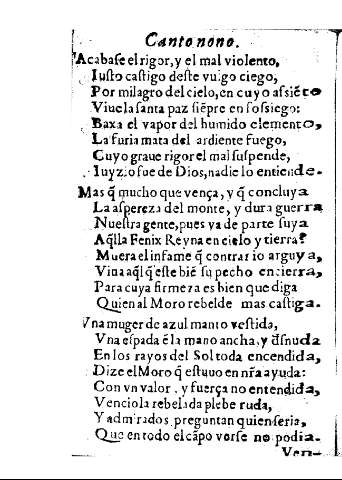 Canto nono.
Acabase el rigor, y el mal violento,
Iusto castigo deste vulgo ciego,
Por milagro del cielo, en cuyo assiẽto
Viue la santa paz siẽpre en sossiego:
Baxa el vapor del humido elemento,
La furia mata del ardiente fuego,
Cuyo graue rigor el mal suspende,
Iuyzio fue de Dios, nadie lo entiende.
Mas q̃ mucho que vença, y q̃ concluya
La aspereza del monte, y dura guerra
Nuestra gente, pues va de parte suya
Aq̃lla Fenix Reyna en cielo y tierra?
Muera el infame q̃ contrario arguya,
Viua aq̃l q̃ este biẽ su pecho encierra,
Para cuya firmeza es bien que diga
Quien al Moro rebelde mas castiga.
Vna muger de azul manto vestida,
Vna espada ẽ la mano ancha, y d̃snuda
En los rayos del Sol toda encendida,
Dize el Moro q̃ estuuo en nr̃a ayuda:
Con vn valor, y fuerça no entendida,
Venciola rebelada plebe ruda,
Y admirados preguntan quien seria,
Que en todo el cãpo verse no podia.
Ven-